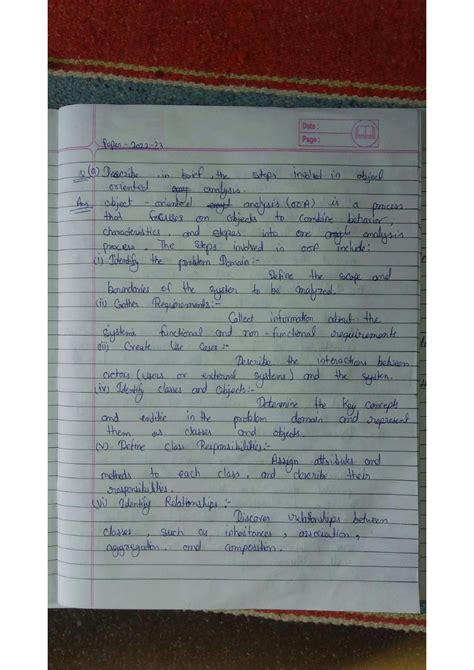 Date :
Page :
Paper - 2022-23
Q (a) Describe in brief, the steps involved in object
oriented analysis.
Ans object - oriented analysis (OOA) is a process
that focuses on objects to combine behavior,
characteristics, and into one analysis
process. The steps involved in OOA include:
(i) Identify the problem Domain:-
Define the scope and
boundaries of the system to be analyzed.
(ii) Gather Requirements:-
Collect information about the
systems functional and non-functional requirements
(iii) Create Use Cases:-
Describe the interactions between
actors (users or external systems) and the system.
(iv) Identify classes and Objects:-
Determine the Key concepts
and entitie in the problem domain and represent
them as classes and objects.
(v) Define Class Responsibilities:-
Assign attributes and
methods to each class, and describe their
responsibilities.
(vi) Identify Relationships :-
Discover relationships between
classes, such as inheritances, association,
aggregation, and composition.